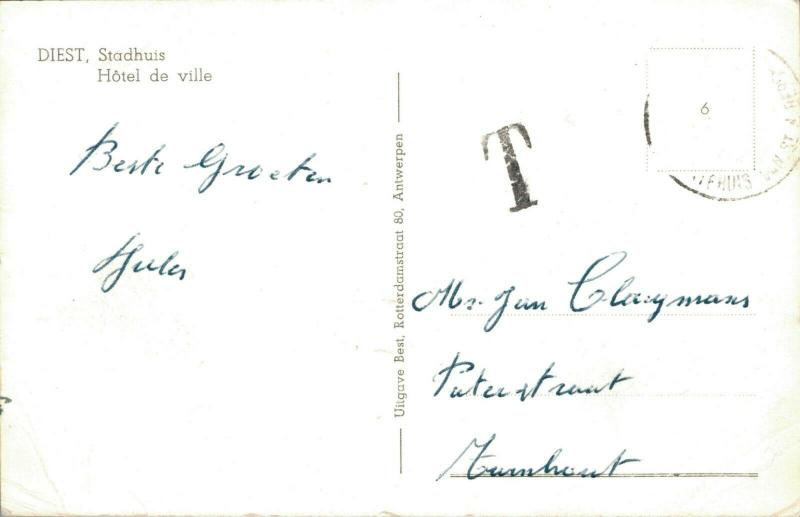 DIEST, Stadhuis
Hôtel de ville
Beste Groeten
Jules
Uitgave Best, Rotterdamstraat 80, Antwerpen
T
6
Mr. Jan Claeymans
Paterstraat
Turnhout